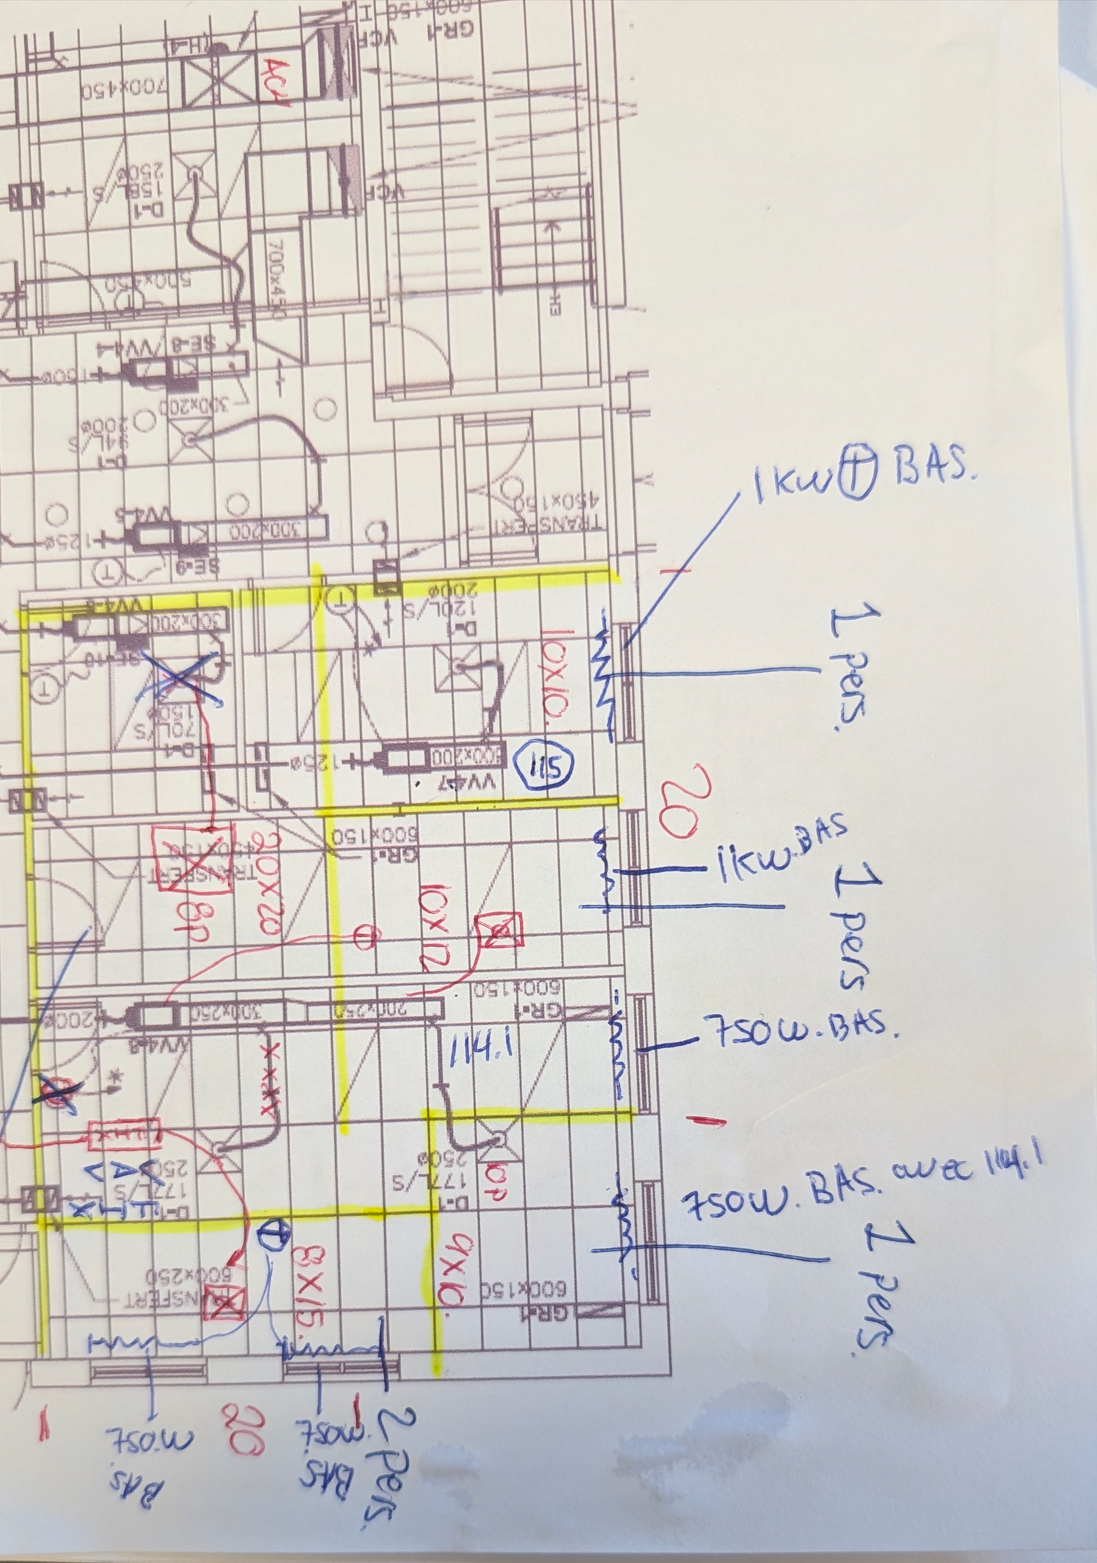 600x150
GR-1
VCF
(H-4)
ACH
700x450
D-1
158L/S
250ø
VCF
700x450
500x450
H3
SE-8
VV4-4
150ø
300x200
D-1
94L/S
200ø
450x150
TRANSFERT
VV4-5
300x200
125ø
SE-9
T
T
1KW T BAS.
VV4-6
300x200
SE-10
T
D-1
120L/S
200ø
10X10.
1 pers.
D-1
70L/S
150ø
125ø
600x200
VV4-7
115
20
600x150
GR-1
TRANSFERT
450x150
8P
20X20
10X12
1KW.BAS
1 pers
600x150
GR-1
200ø
300x250
200x250
VV4-8
XXXX
114.1
750W.BAS.
D-1
177L/S
250ø
D-1
177L/S
250ø
10P
750W. BAS. avec 114.1
1 pers.
TRANSFERT
600x250
T
8X15.
9X10.
600x150
GR-1
1
20
1
BAS.
BAS
2 pers.